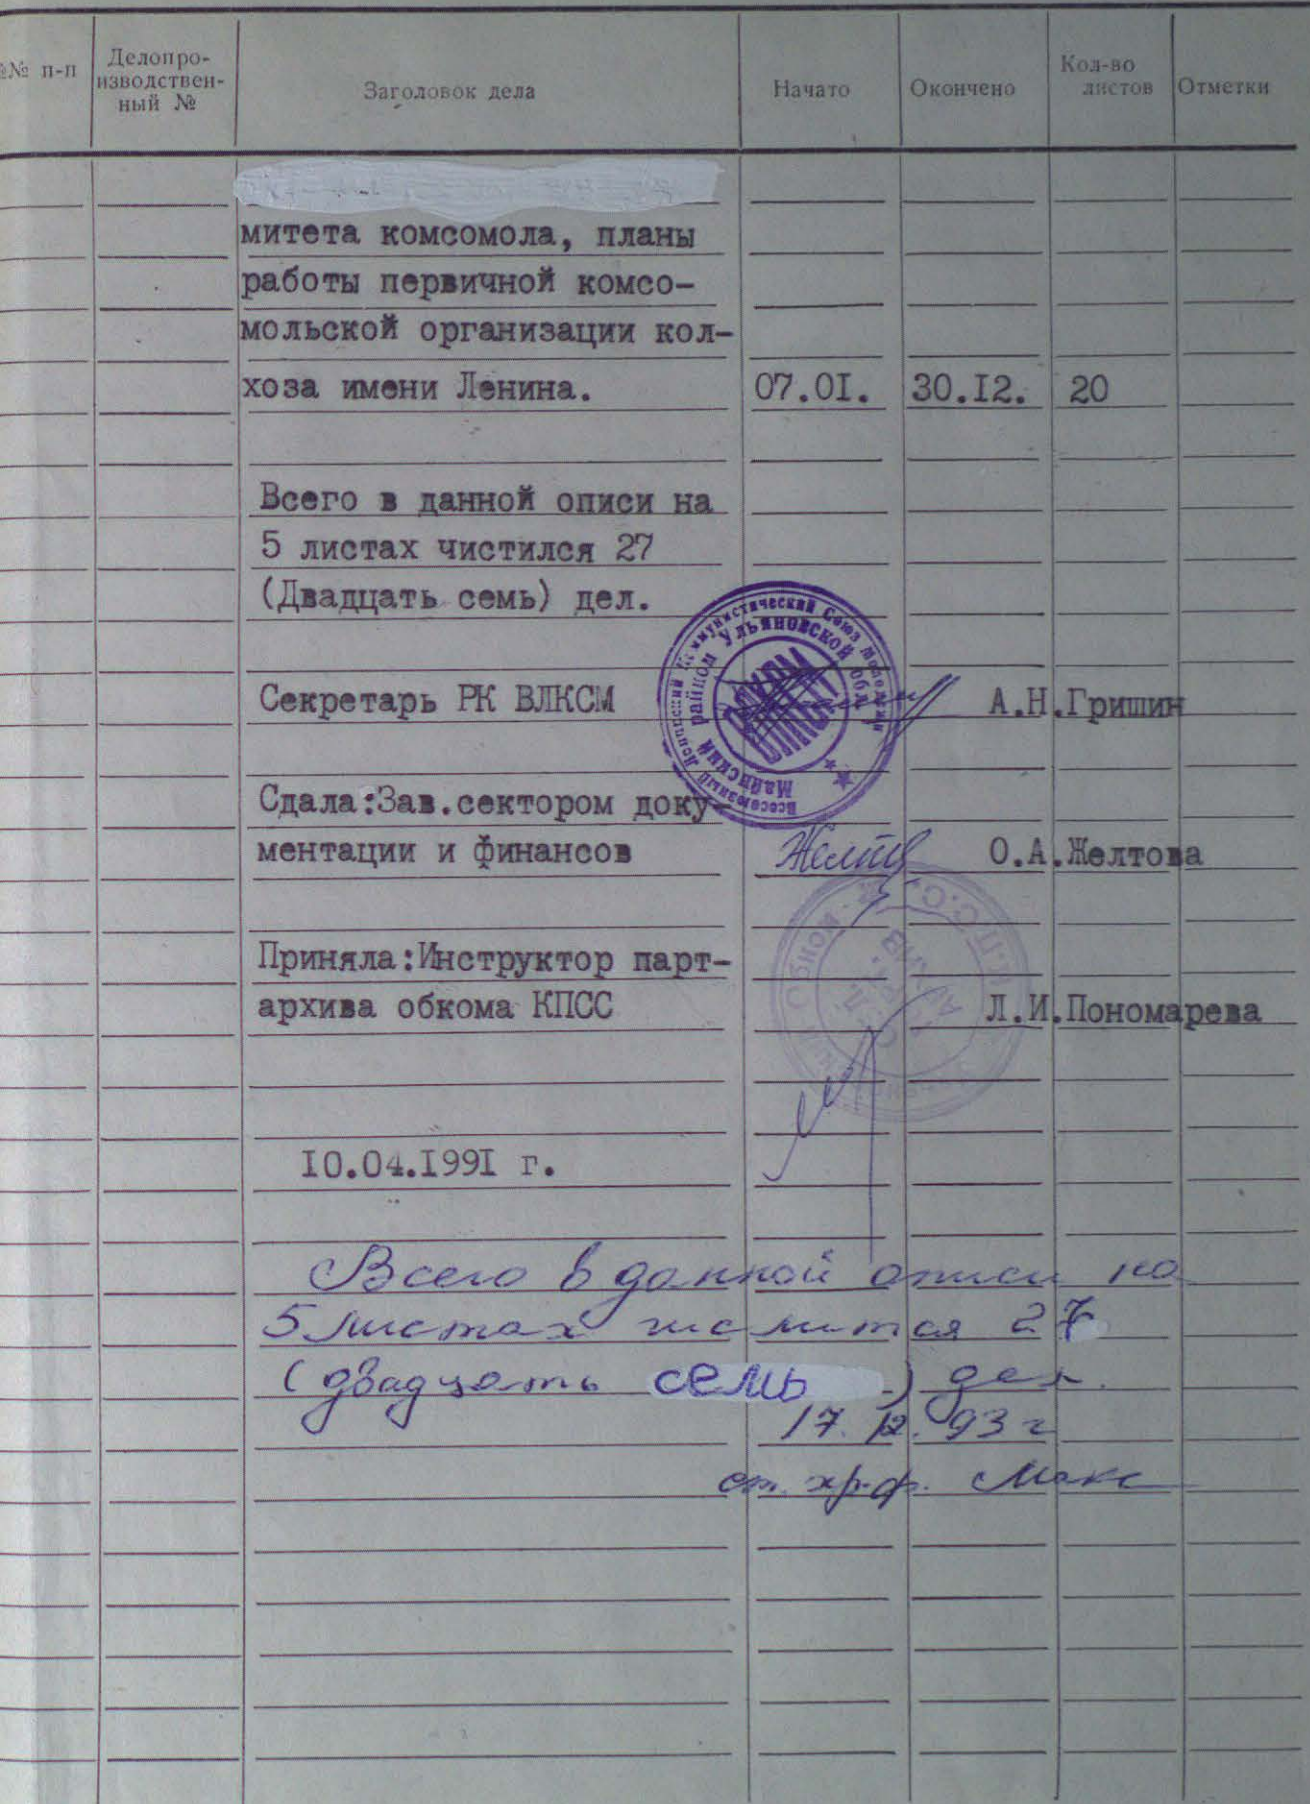 №№ п-п
Делопро-
изводствен-
ный №
Заголовок дела
Начато
Окончено
Кол-во
листов
Отметки
митета комсомола, планы
работы первичной комсо-
мольской организации кол-
хоза имени Ленина. 07.01. 30.12. 20
Всего в данной описи на
5 листах чистился 27
(Двадцать семь) дел.
Секретарь РК ВЛКСМ А.Н.Гришин
Всесоюзный Ленинский Коммунистический Союз Молодежи
Майнский райком Ульяновской обл.
РАЙКОМ
ВЛКСМ
Сдала:Зав.сектором доку-
ментации и финансов О.А.Желтова
Приняла:Инструктор парт-
архива обкома КПСС Л.И.Пономарева
АРХИВ
10.04.1991 г.
Всего в данной описи на
5 листах числится 27
(двадцать семь) дел.
17.12.93 г
ст. хр.ф.